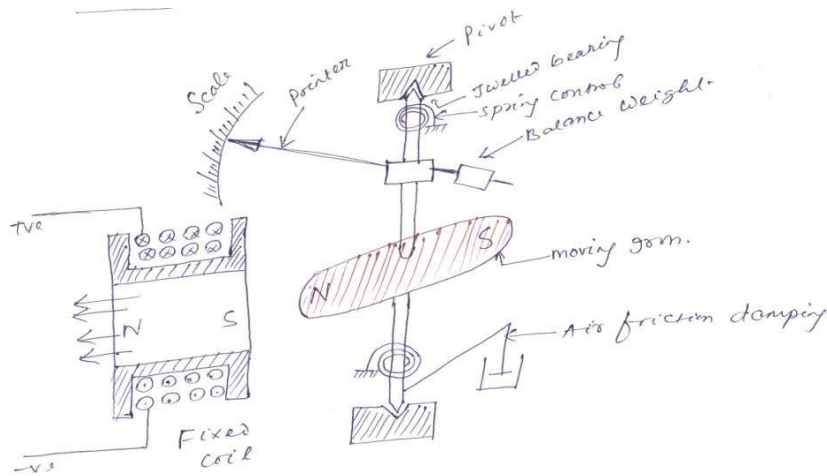 Pivot
Jwelled bearing
Spring control
Balance weight.
Scale
Pointer
+ve
S
N
moving
N
S
Air friction damping
Fixed
coil
-ve